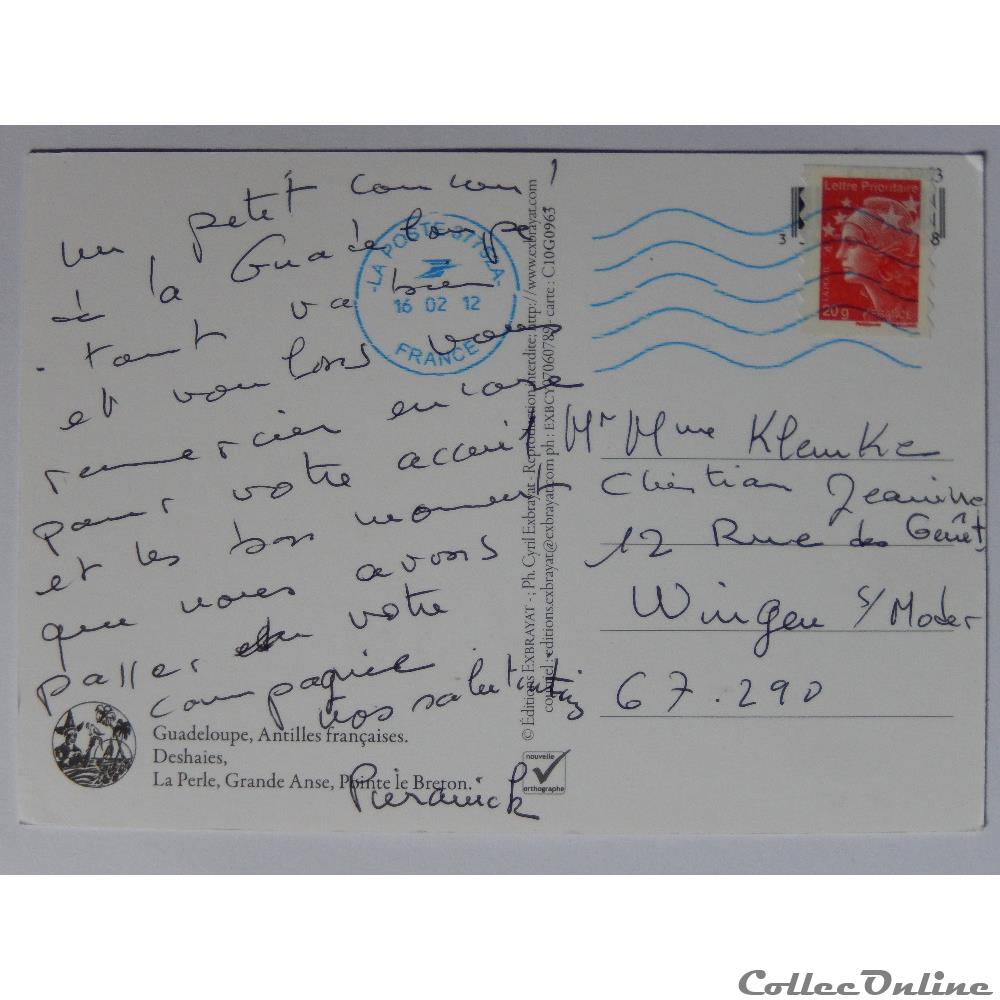 un petit coucou !
de la Guadeloupe.
tout va bien
et voulons vous
remercier encore
pour votre accueil
et les bon moment
que nous avons
passer en votre
compagnie
nos salutations
Pieranick
Guadeloupe, Antilles françaises.
Deshaies,
La Perle, Grande Anse, Pointe le Breton.
LA POSTE 37752A
16 02 12
FRANCE
© Éditions EXBRAYAT - ; Ph. Cyril Exbrayat - Reproduction interdite; http://www.exbrayat.com
courriel : editions.exbrayat@exbrayat.com ph : carte : C10G0963
nouvelle
orthographe
Lettre Prioritaire
20g FRANCE
3
3
8
Mr Mme Klemke
Christian Jeannine
12 Rue des Genêt
Wingen s/ Moder
67.290
CollecOnline